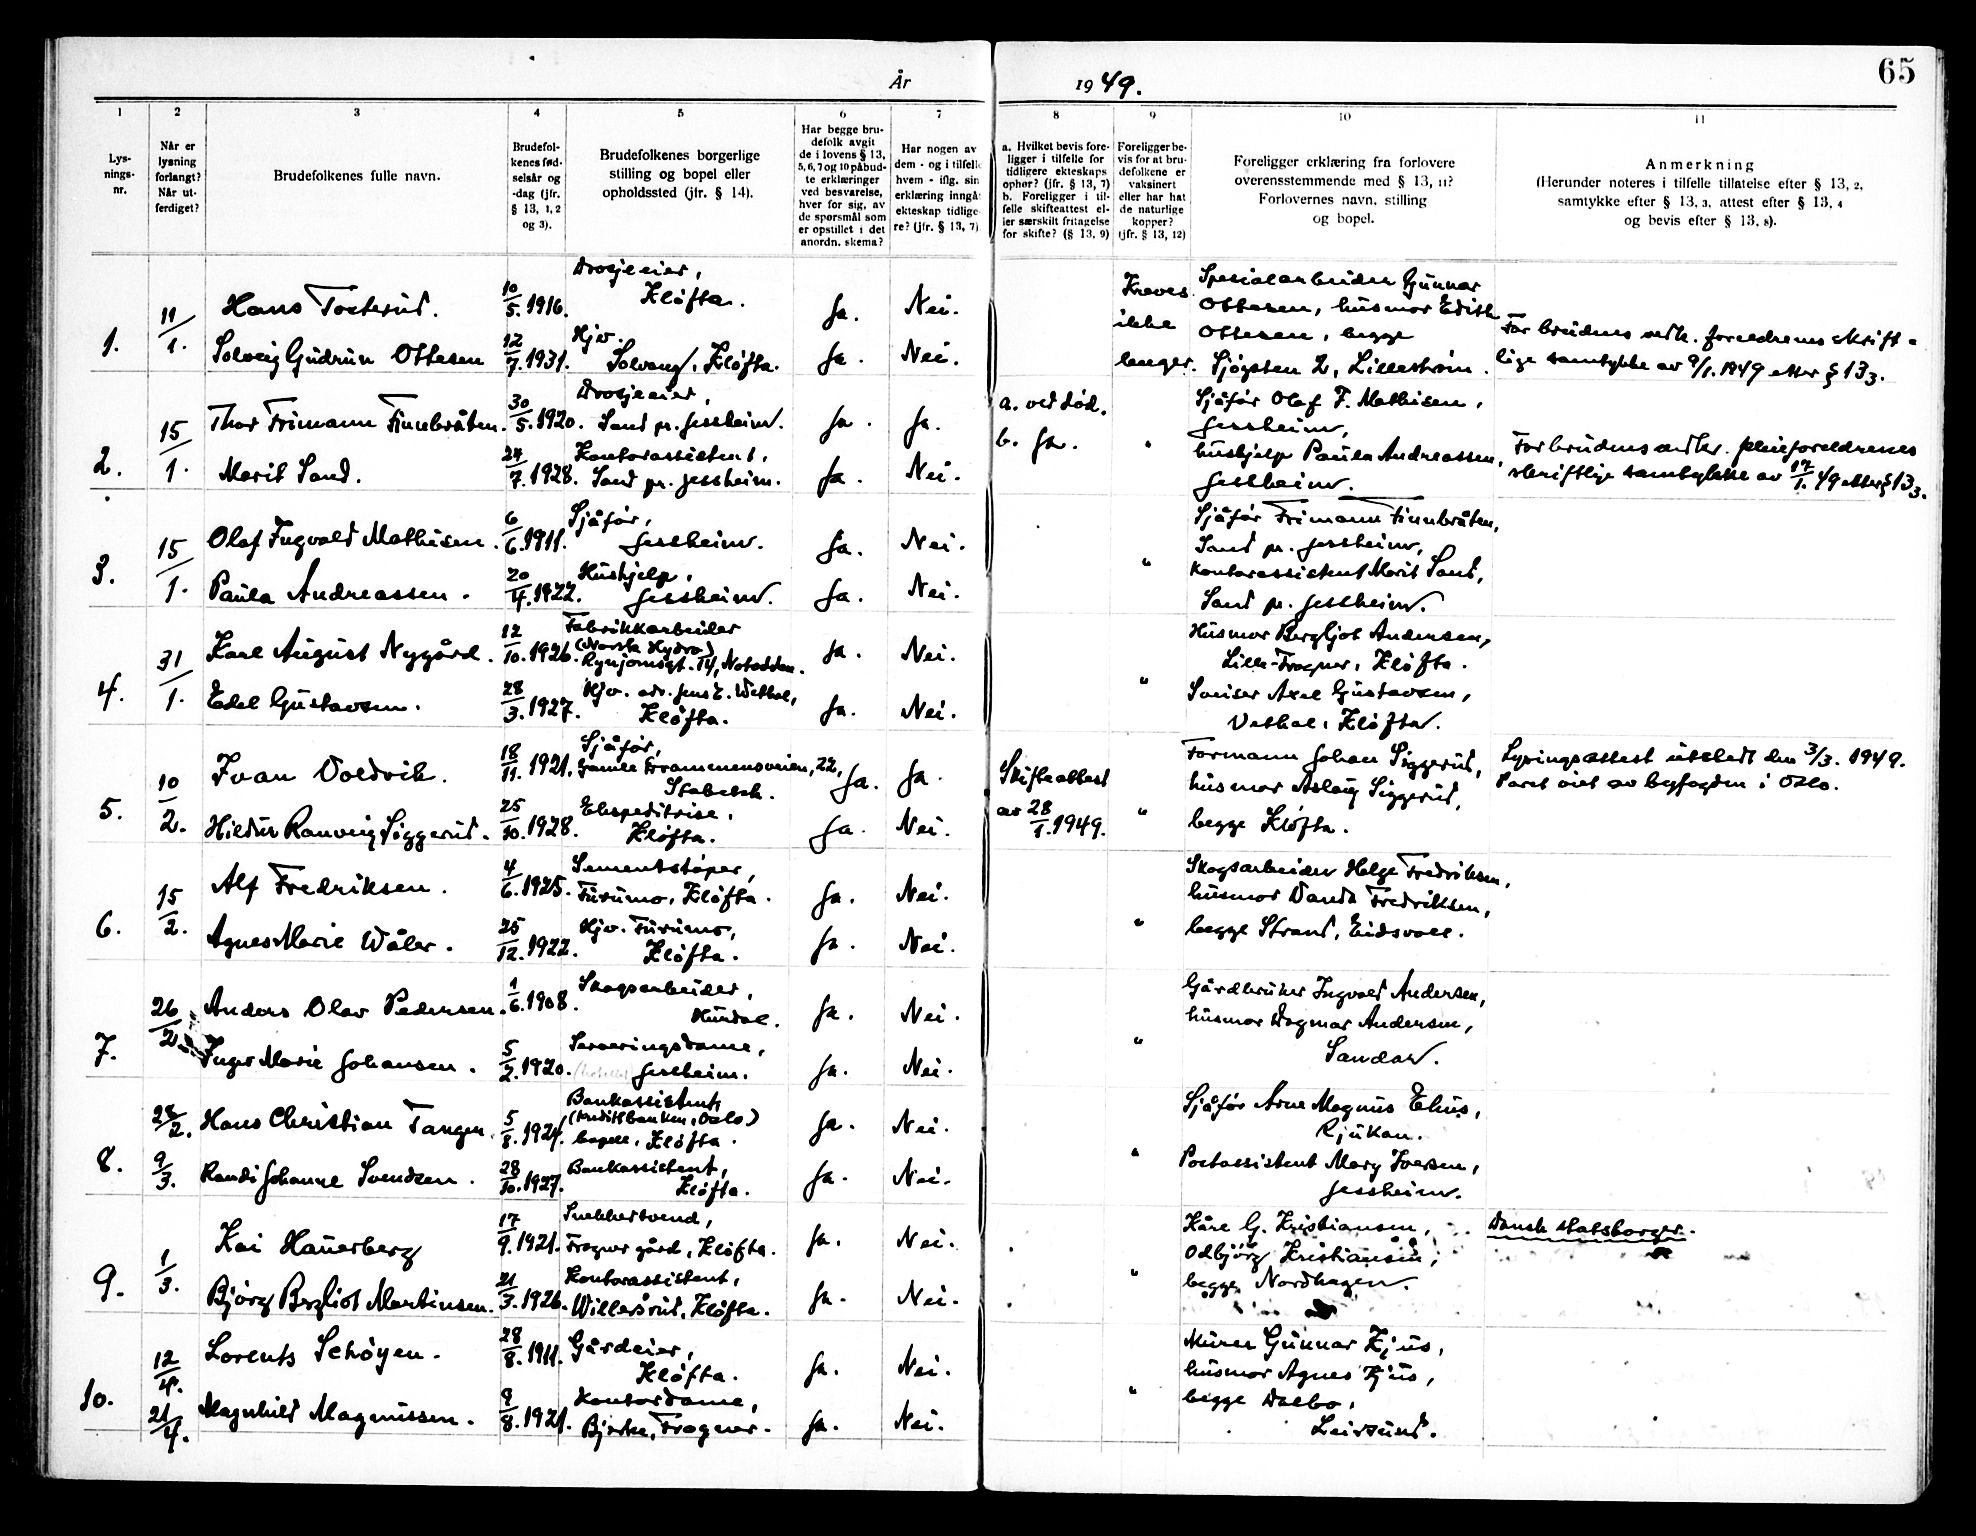 65
År 1949.
1
2
3
4
5
6
7
8
9
10
11
Lys-
nings-
nr.
Når er
lysning
forlangt?
Når ut-
ferdiget?
Brudefolkenes fulle navn.
Brudefol-
kenes fød-
selsår og
-dag (jfr.
§ 13, 1, 2
og 3).
Brudefolkenes borgerlige
stilling og bopel eller
opholdssted (jfr. § 14).
Har begge bru-
defolk avgit
de i lovens § 13,
5, 6, 7 og 10 påbud-
te erklæringer
ved besvarelse,
hver for sig, av
de spørsmål som
er opstillet i det
anordn. skema?
Har nogen av
dem - og i tilfelle
hvem - iflg. sin
erklæring inngå
ekteskap tidlige-
re? (jfr. § 13, 7)
a. Hvilket bevis fore-
ligger i tilfelle for
tidligere ekteskaps
ophør? (jfr. § 13, 7)
b. Foreligger i til-
felle skifteattest el-
ler særskilt fritagelse
for skifte? (§ 13, 9)
Foreligger be-
vis for at bru-
defolkene er
vaksinert
eller har hat
de naturlige
kopper?
(jfr. § 13, 12)
Foreligger erklæring fra forlovere
overensstemmende med § 13, 11?
Forlovernes navn, stilling
og bopel.
Anmerkning
(Herunder noteres i tilfelle tillatelse efter § 13, 2,
samtykke efter § 13, 3, attest efter § 13, 4
og bevis efter § 13, 8).
1.
11/1.
Hans Tosterud.
10/5. 1916.
Drosjeeier,
Kløfta.
Ja.
Nei.
Solveig Gudrun Ottesen
12/7. 1931.
Hjv.
Solvang, Kløfta.
Ja.
Nei.
Kreves
ikke
lenger.
Spesialarbeider Gunnar
Ottesen, husmor Edith
Ottesen, begge
Sjøgsten 2, Lillestrøm.
For brudens vedk. foreldrenes skrift-
lige samtykke av 9/1. 1949 etter § 13 3.
2.
15/1.
Thor Frimann Finnbråten.
30/5. 1920.
Drosjeeier,
Sand pr. Jessheim.
Ja.
Ja.
Marit Sand.
24/7. 1928.
Kontorassistent,
Sand pr. Jessheim.
Ja.
Nei.
a. ved død.
b. Ja.
"
Sjåfør Olaf F. Mathisen,
Jessheim,
hushjelp Paula Andreassen,
Jessheim.
For brudens vedkr. pleieforeldrenes
skriftlige samtykke av 17/1. 49 etter § 13 3.
3.
15/1.
Olaf Ingvald Mathisen.
6/6. 1911.
Sjåfør,
Jessheim.
Ja.
Nei.
Paula Andreassen.
20/4. 1922.
Hushjelp,
Jessheim.
Ja.
Nei.
"
Sjåfør Frimann Finnbråten,
Sand pr. Jessheim,
Kontorassistent Marit Sand,
Sand pr. Jessheim.
4.
31/1.
Karl August Nygård.
12/10. 1926.
Fabrikkarbeider
(Norsk Hydro)
Rynjomsgt. 14, Notodden.
Ja.
Nei.
Edel Gustavsen.
28/3. 1927.
Hjv. adr. Jens E. Vethal,
Kløfta.
Ja.
Nei.
"
Husmor Bergljot Andersen,
Lille-Frogner, Kløfta.
Sveiser Axel Gustavsen,
Vethal, Kløfta.
5.
10/2.
Ivan Voldvik.
18/11. 1921.
Sjåfør,
Gamle Drammensveien, 22,
Stabekk.
Ja.
Ja.
Hildur Ranveig Siggerud.
25/10. 1928.
Ekspeditrise,
Kløfta.
Ja.
Nei.
Skifteattest
av 28/1. 1949.
"
Formann Johan Siggerud,
husmor Aslaug Siggerud,
begge Kløfta.
Lysningsattest utstedt den 3/3. 1949.
Paret viet av byfogden i Oslo.
6.
15/2.
Alf Fredriksen.
4/6. 1925.
Sementstøper,
Furumo, Kløfta.
Ja.
Nei.
Agnes Marie Wåler.
25/12. 1922.
Hjv. Furumo,
Kløfta.
Ja.
Nei.
"
Skogsarbeider Helge Fredriksen,
husmor Vanda Fredriksen,
begge Strand, Eidsvoll.
7.
26/2
Anders Olav Pedersen.
1/6. 1908.
Skogsarbeider,
Hurdal.
Ja.
Nei.
Inger Marie Johansen.
5/2. 1920.
Serveringsdame,
Jessheim.
Ja.
Nei.
"
Gårdbruker Ingvald Andersen,
husmor Dagmar Andersen,
Sandar.
8.
28/2.
9/3.
Hans Christian Tangen.
5/8. 1924.
Bankassistent,
(Kreditbanken, Oslo)
bopel, Kløfta.
Ja.
Nei.
Randi Johanne Svendsen.
28/10. 1927.
Bankassistent,
Kløfta.
Ja.
Nei.
"
Sjåfør Arne Magnus Ehus,
Rjukan.
Postassistent Mary Iversen,
Jessheim.
9.
1/3.
Kai Hauerberg
17/9. 1921.
Snekkersvend,
Frogner gård, Kløfta.
Ja.
Nei.
Bjørg Bergliot Martinsen.
21/3. 1926.
Kontorassistent,
Willersrud, Kløfta.
Ja.
Nei.
"
Kåre G. Kristiansen,
Odbjørg Kristiansen,
begge Nordhagen.
Dansk statsborger.
10.
12/4.
21/4.
Lorents Schøyen.
28/8. 1911.
Gårdeier,
Kløfta.
Ja.
Nei.
Magnhild Magnussen.
9/8. 1921.
Kontordame,
Bjerke, Frogner.
Ja.
Nei.
"
Murer Gunnar Kjus,
husmor Agnes Kjus,
begge Dalbo,
Leirsund.